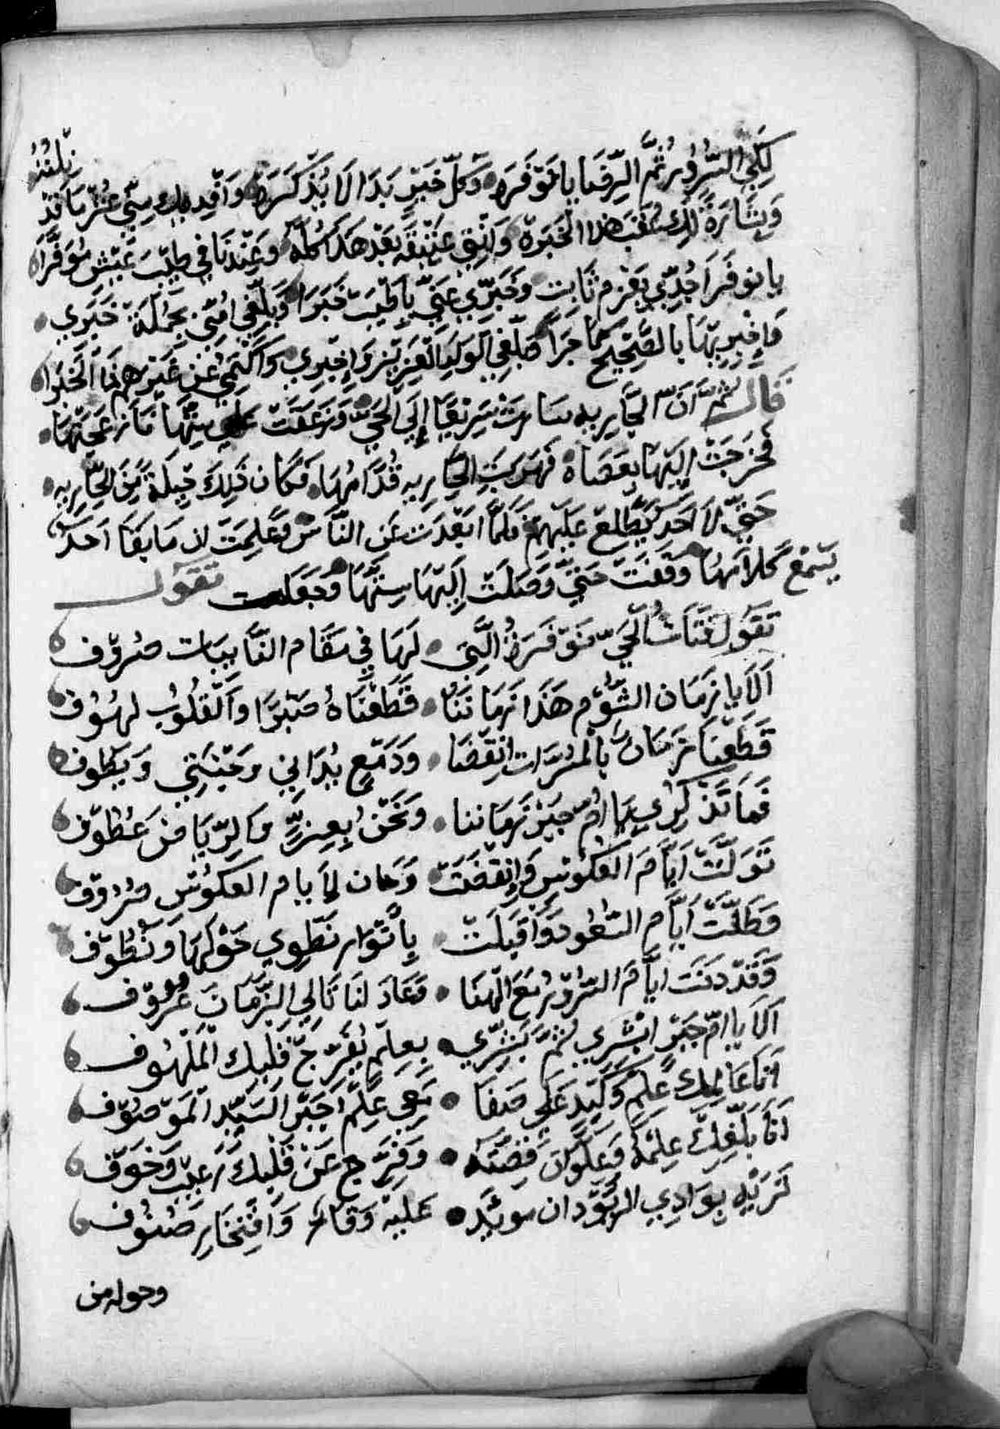 لِكَيْ السُّرُورِ ثُمَّ الرِّقَبَا يا مَوْفَرَهْ وَكُلّ خَبَرٍ بَدَا لَا يُذْكَرَهْ وَاقْدِمِكِ سِتِّي عُشْرَ مَا قَدْ نِلْتُهُ
وَبِشَارَةً لَكِ عُقَبَ هذا الخَبَرَهْ بَعْدَ هَذَا كُلِّهِ وَعِنْدَنَا فِي طِيْبِ عَيْشٍ مُوَفَّرَاهْ
يا نوفَرَا جُدِّي بِعَزْمٍ ثَابِت وخَبِّرِي عَنِّي بِأَطْيَبْ خَبَرَا وَبَلِّغِي امِّي بِجُمْلَةْ خَبَرِي
وَاخْبِرِيهَا بِالصَّحِيحْ كَمَا جَرَا بَلِّغِي الْوَلَدِ الْعَزِيزِ وَاخْبِرِي وَاكْتُمِي عَنْ غَيْرِهِمْ هَذَا الْخَبَرَا
قَالَ ثُمَّ انَّ الْجَارِيه سَارَتْ سَرِيعًا إِلَى الْحَيِّ وَزَعَقَتْ عَلَى سِتِّهَا فَانْزَعَجَتْهَا
فَخَرَجَتْ الَيْهَا بِعَصَاهْ فَهَرَبَتِ الْجَارِيه قُدَّامَهَا فَكَان ذَلِكَ حِيْلَةْ مِنَ الْجَارِيه
حَتَّى لَا احَدْ يَطَّلِعْ عَلَيْهِمْ فَلَمَّا ابْعَدَتْ عَنِ النَّاسْ وَعَلِمَتْ ان مَا بَقَا احَدْ
يَسْمَعْ كَلَامَهَا وَقَفَتْ حَتَّى وَصَلَتْ إِلَيْهَا سِتُّهَا وَجَعَلَت تَقُول
تَقُولُ فَتَاتُ الْحَيِّ مَوْفَرَةُ الَّتِي لَهَا فِي مَقَامِ النَّايِبَات صُرُوْف
الَا يا زَمَان الشُّؤْم هَذَا زَمَانَنَا قَطَعْنَاهُ صَبْرًا وَالْقُلُوْبُ لَهُوْف
قَطَعْنَا زَمَان بِالْمَسَرَّات انْقَضَا وَدَمْعِ بُدَانِي وَجْنَتِي وَيَطُوف
فَمَا تَذْكُرِي يا امّ جَبْرْ زَمَاننا وَنَحْنُ بِعِزٍّ وَالرِّيَاضْ عُطُوْف
تَوَلَّتْ ايَّامَ العكُوْس وَانْقَضَتْ وَحَان لِأَيام العكُوْسِ صُرُوْف
وَطَلَّتْ ايَّام السُّعُود وَأَقْبَلَتْ بِأَنْوَار نَطْوِي حَوْلَهَا وَنَطُوْف
وَقَدْ دَنَتْ ايَّام السُّرُوْرِ مَعَ الْهَنَا وَعَادَ لَنَا تَالِي الزَّمَانَ عُرُوْف
الَا يا امّ جَبْرْ ابْشِرِي ثُمَّ بَشِّرِي بِعِلْمٍ يُفَرِّجَ قَلْبِكِ الْمَلْهُوف
انَا عَالِمكِ عِلْمٍ وَكِيْدٍ عَلَى صَفَا مَعِي عِلْمْ جَبْرْ السَّيِّدْ الْمَوْصُوْف
انَا بَلِّغِكِ عِلْمُهْ وَعِلْوَان قِصَّتَهْ وَفَرِّجْ عَنْ قَلْبِكِ رُعْبْ وَخَوْف
تَرَيْهِ بِوَادِي السُّوْدَان سَيِّد عَلَيْهْ وَقَار وَافْتِخَارِ صُنُوْف
وحوله من